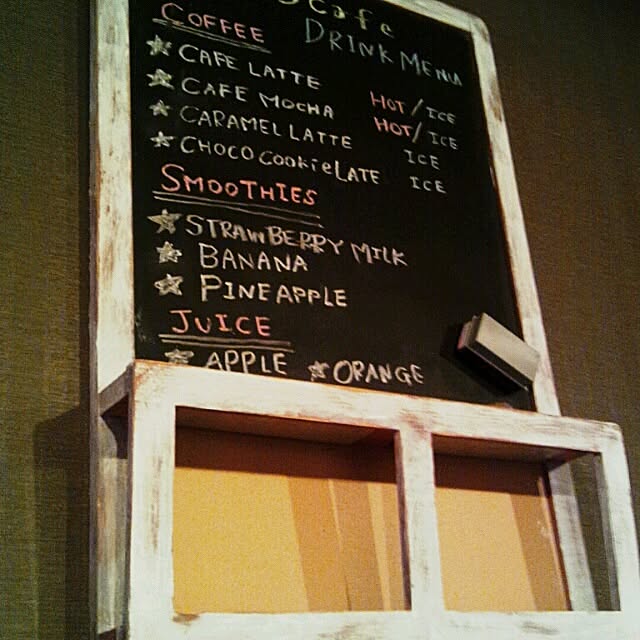 Cafe
DRINK MENU
COFFEE
CAFE LATTE HOT/ICE
CAFE MOCHA HOT/ICE
CARAMEL LATTE ICE
CHOCO COOKIELATE ICE
SMOOTHIES
STRAWBERRY MILK
BANANA
PINEAPPLE
JUICE
APPLE ORANGE